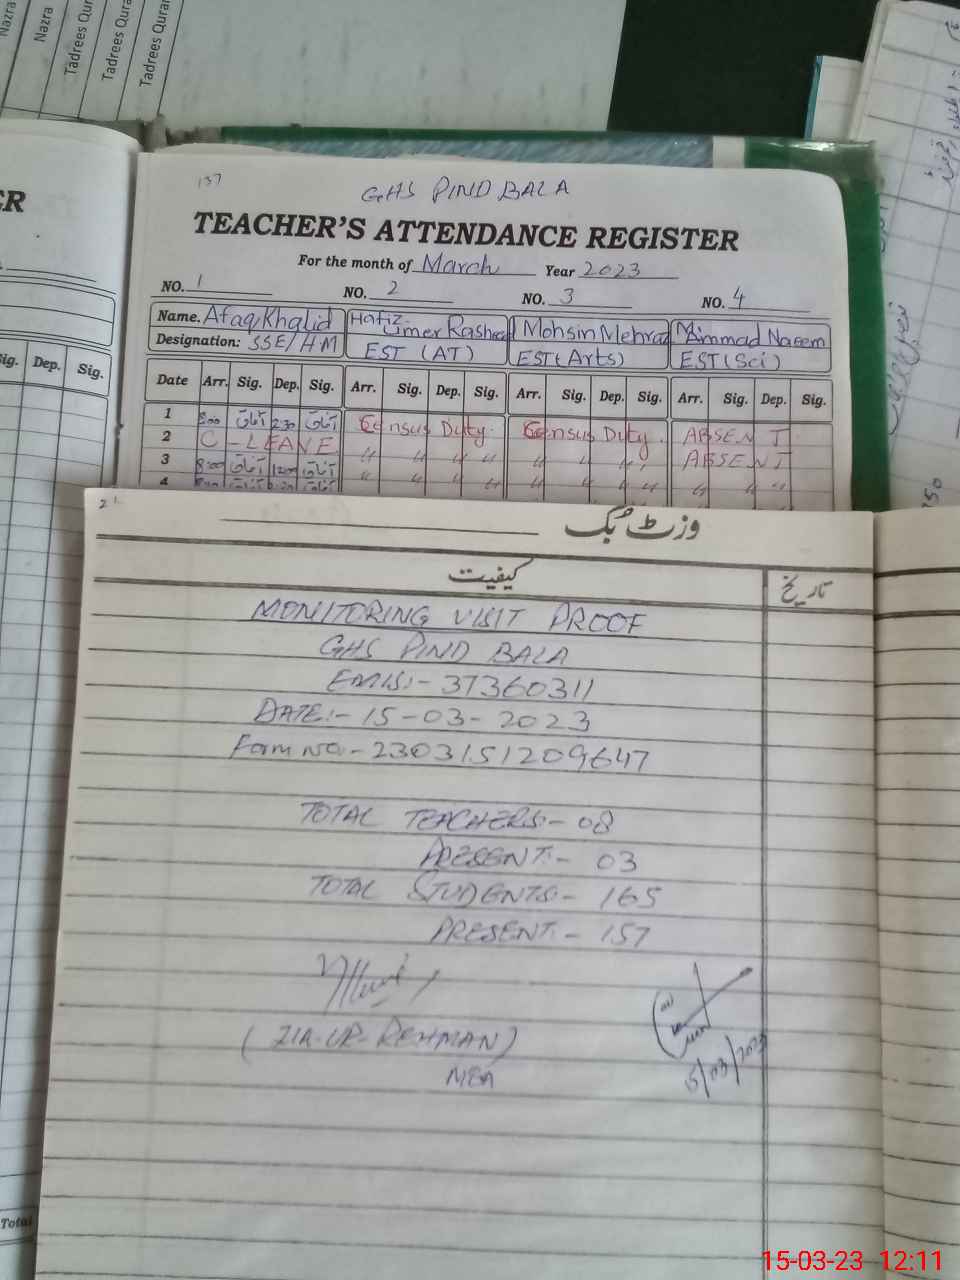 Nazra
Nazra
Tadrees Qur
Tadrees Qura
Tadrees Quran
137
GHS PIND BALA
ER
TEACHER'S ATTENDANCE REGISTER
For the month of March Year 2023
NO. 1 NO. 2 NO. 3 NO. 4
Name. Afaq Khalid Hafiz Umer Rasheed Mohsin Mehraz Ammad Naeem
Designation: SSE/HM EST (AT) EST (Arts) EST (Sci)
Sig. Dep. Sig.
Date Arr. Sig. Dep. Sig. Arr. Sig. Dep. Sig. Arr. Sig. Dep. Sig. Arr. Sig. Dep. Sig.
1 8:00 آفاق 2:30 آفاق Census Duty Census Duty ABSENT
2 C-LEAVE " " " " " " " ABSENT
3 8:00 آفاق آفاق " " " " " " " " "
4
وزٹ بُک
کیفیت تاریخ
MONITORING VISIT PROOF
GHS PIND BALA
EMIS:- 37360311
DATE:- 15-03-2023
Form no- 2303151209647
TOTAL TEACHERS:- 08
PRESENT:- 03
TOTAL STUDENTS:- 165
PRESENT:- 157
(ZIA-UR-REHMAN)
MEA
15/03/2023
Total
15-03-23 12:11